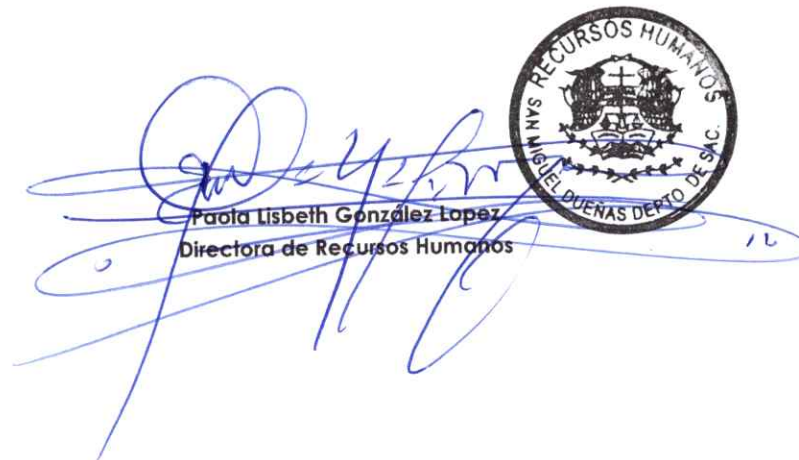 RECURSOS HUMANOS
SAN MIGUEL DUEÑAS DEPTO DE SAC.
Paola Lisbeth González Lopez
Directora de Recursos Humanos